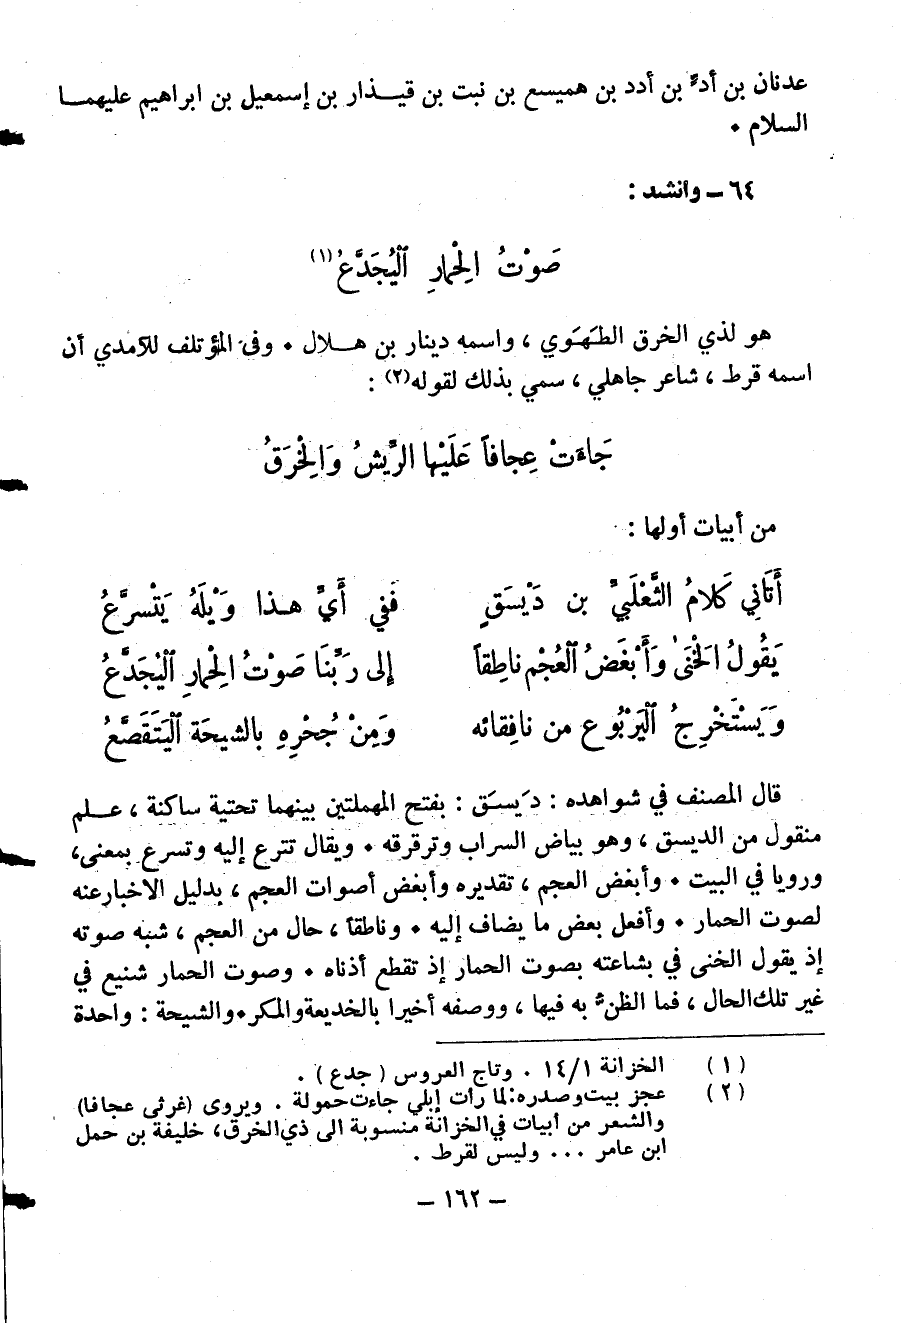 عدنان بن أدّ بن أدد بن هميسع بن نبت بن قيـذار بن إسمعيل بن ابراهيم عليهمـا
السلام ٠
٦٤ – وانشد :
صَوْتُ الحِمارِ ٱلْيُجَدَّعُ(١)
هو لذي الخرق الطَهَوي ، واسمه دينار بن هـلال ٠ وفي المؤتلف للآمدي أن
اسمه قرط ، شاعر جاهلي ، سمي بذلك لقوله(٢) :
جَاءَتْ عِجافاً عَلَيْها الرِّيشُ وَالخِرَقُ
من أبيات أولها :
أَتَانِي كَلامُ الثَّعْلَبِيِّ بن دَيْسَقٍ فَفي أَيِّ هـذا وَيْلَهُ يَتْسرَّعُ
يَقُولُ الخَنىٰ وَأَبْغَضُ ٱلْعُجْمِ ناطِقاً إلى رَبِّنَا صَوْتُ الحِمارِ ٱلْيُجَدَّعُ
وَيَسْتَخْرِجُ ٱلْيَرْبُوع من نافِقائه وَمِنْ جُحْرِهِ بالشيحَة ٱلْيَتَقَصَّعُ
قال المصنف في شواهده : دَيسَق : بفتح المهملتين بينهما تحتية ساكنة ، علـم
منقول من الديسق ، وهو بياض السراب وترقرقه ٠ ويقال تترع إليه وتسرع بمعنى،
ورويا في البيت ٠ وأبغض العجم ، تقديره وأبغض أصوات العجم ، بدليل الاخبارعنه
لصوت الحمار ٠ وأفعل بعض ما يضاف إليه ٠ وناطقاً ، حال من العجم ، شبه صوته
إذ يقول الخنى في بشاعته بصوت الحمار إذ تقطع أذناه ٠ وصوت الحمار شنيع في
غير تلك الحال ، فما الظنّ به فيها ، ووصفه أخيرا بالخديعة والمكر ٠ والشيحة : واحدة
(١) الخزانة ١٤/١ . وتاج العروس ( جدع ) .
(٢) عجز بيت وصدره: لما رأت إبلي جاءت حمولة . ويروى (غرثى عجافا)
والشعر من أبيات في الخزانة منسوبة الى ذي الخرق، خليفة بن حمل
ابن عامر ... وليس لقرط .
– ١٦٢ –